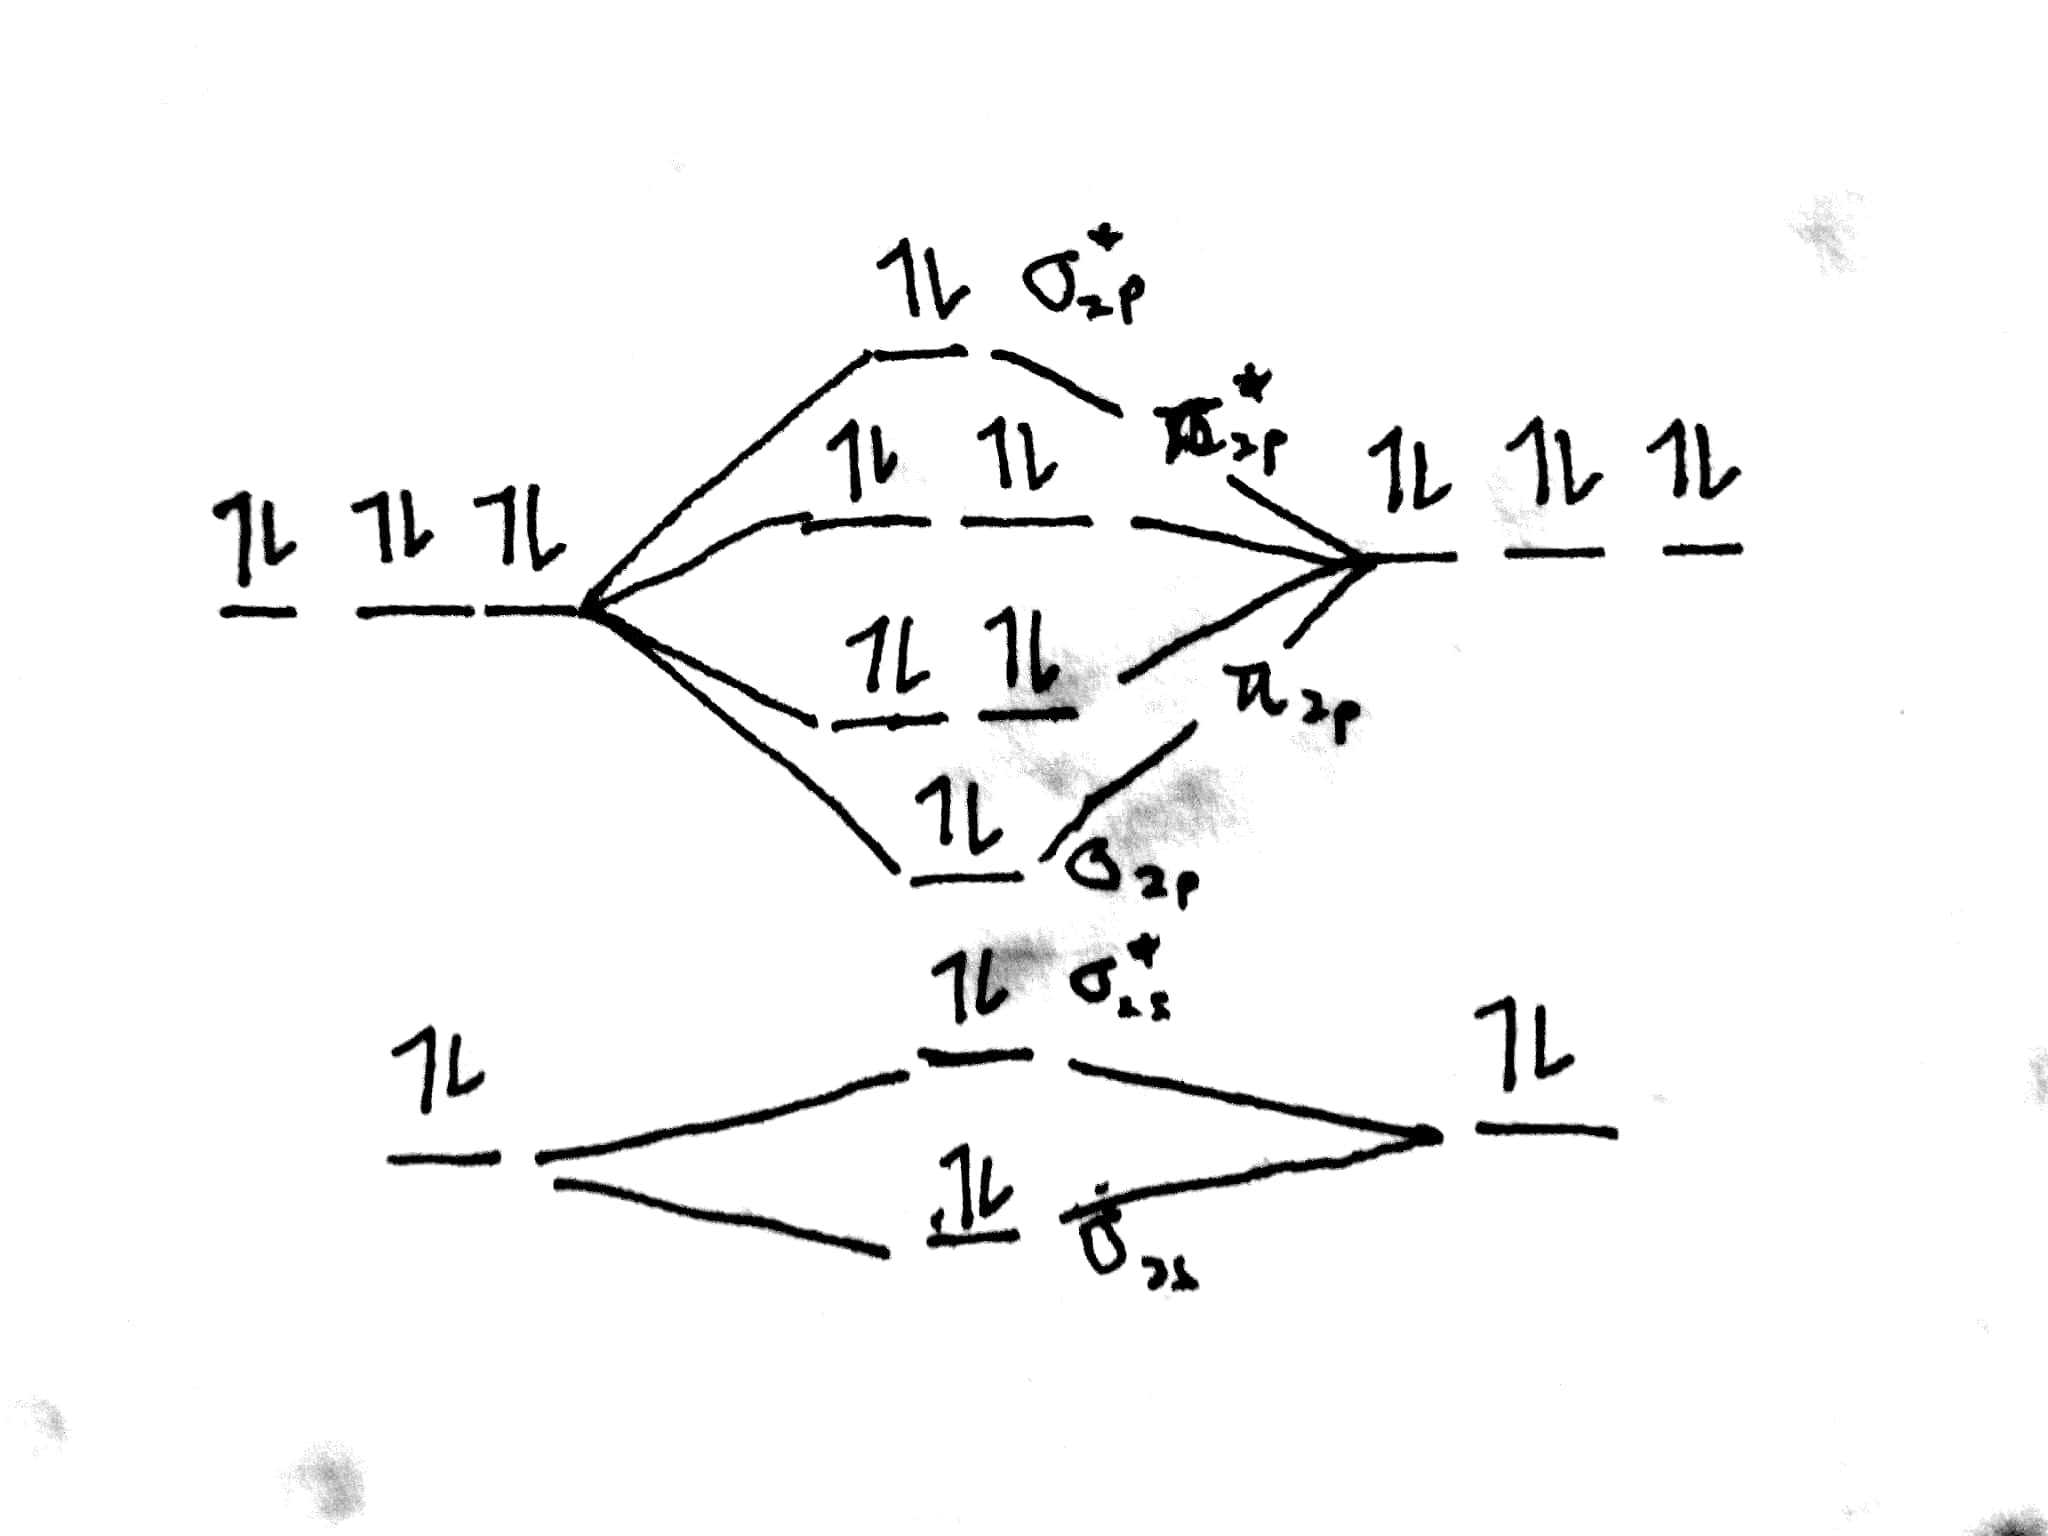 ⥮ σ*2p
⥮ ⥮ π*2p
⥮ ⥮ ⥮
⥮ ⥮ ⥮
⥮ ⥮ π2p
⥮ σ2p
⥮ σ*2s
⥮
⥮
⥮ σ2s